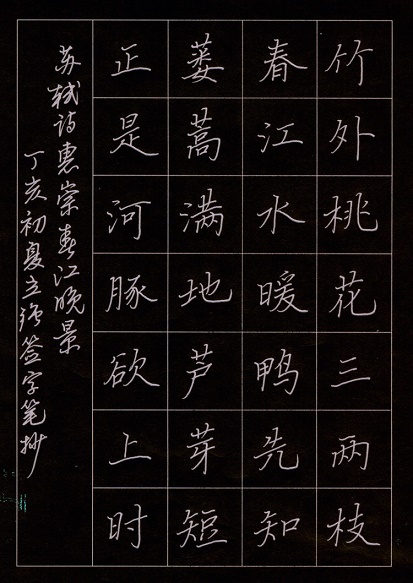 竹外桃花三两枝
春江水暖鸭先知
蒌蒿满地芦芽短
正是河豚欲上时
苏轼诗惠崇春江晚景
丁亥初夏立 签字笔抄